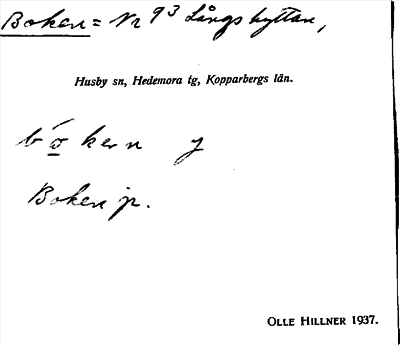 Boken = Nr 93 Långshyttan,
Husby sn, Hedemora tg, Kopparbergs län.
bo̱ken y
Boken jr.
OLLE HILLNER 1937.